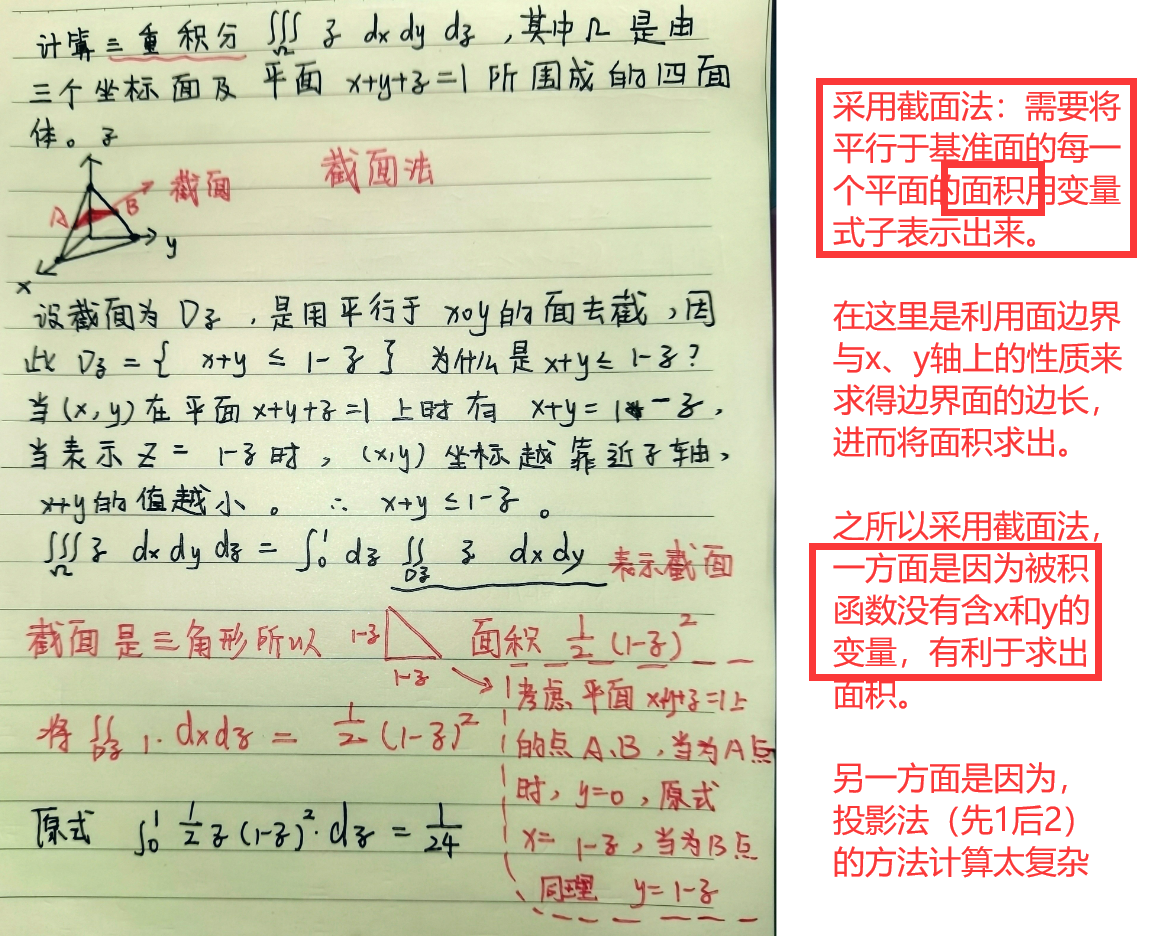 计算三重积分 ∭Ω z dx dy dz ，其中Ω 是由
三个坐标面及 平面 x+y+z=1 所围成的四面
体。
z
截面法
截面
A
B
y
x
设截面为 Dz ，是用平行于 xoy的面去截，因
此 Dz = { x+y ≤ 1-z } 为什么是 x+y ≤ 1-z ?
当(x,y)在平面 x+y+z=1 上时有 x+y= 1-z，
当表示 z = 1-z 时，(x,y) 坐标越靠近z轴，
x+y的值越小。 ∴ x+y ≤ 1-z 。
∭Ω z dx dy dz = ∫₀¹ dz ∬Dz z dx dy 表示截面
截面是三角形所以 1-z 1-z 面积 1/2 (1-z)²
将 ∬Dz 1 · dxdz = 1/2 (1-z)²
考虑平面 x+y+z=1上
的点 A、B，当为A点
时，y=0，原式
x= 1-z，当为B点
同理 y=1-z
原式 ∫₀¹ 1/2 z (1-z)² · dz = 1/24
采用截面法：需要将
平行于基准面的每一
个平面的面积用变量
式子表示出来。
在这里是利用面边界
与x、y轴上的性质来
求得边界面的边长，
进而将面积求出。
之所以采用截面法，
一方面是因为被积
函数没有含x和y的
变量，有利于求出
面积。
另一方面是因为，
投影法（先1后2）
的方法计算太复杂